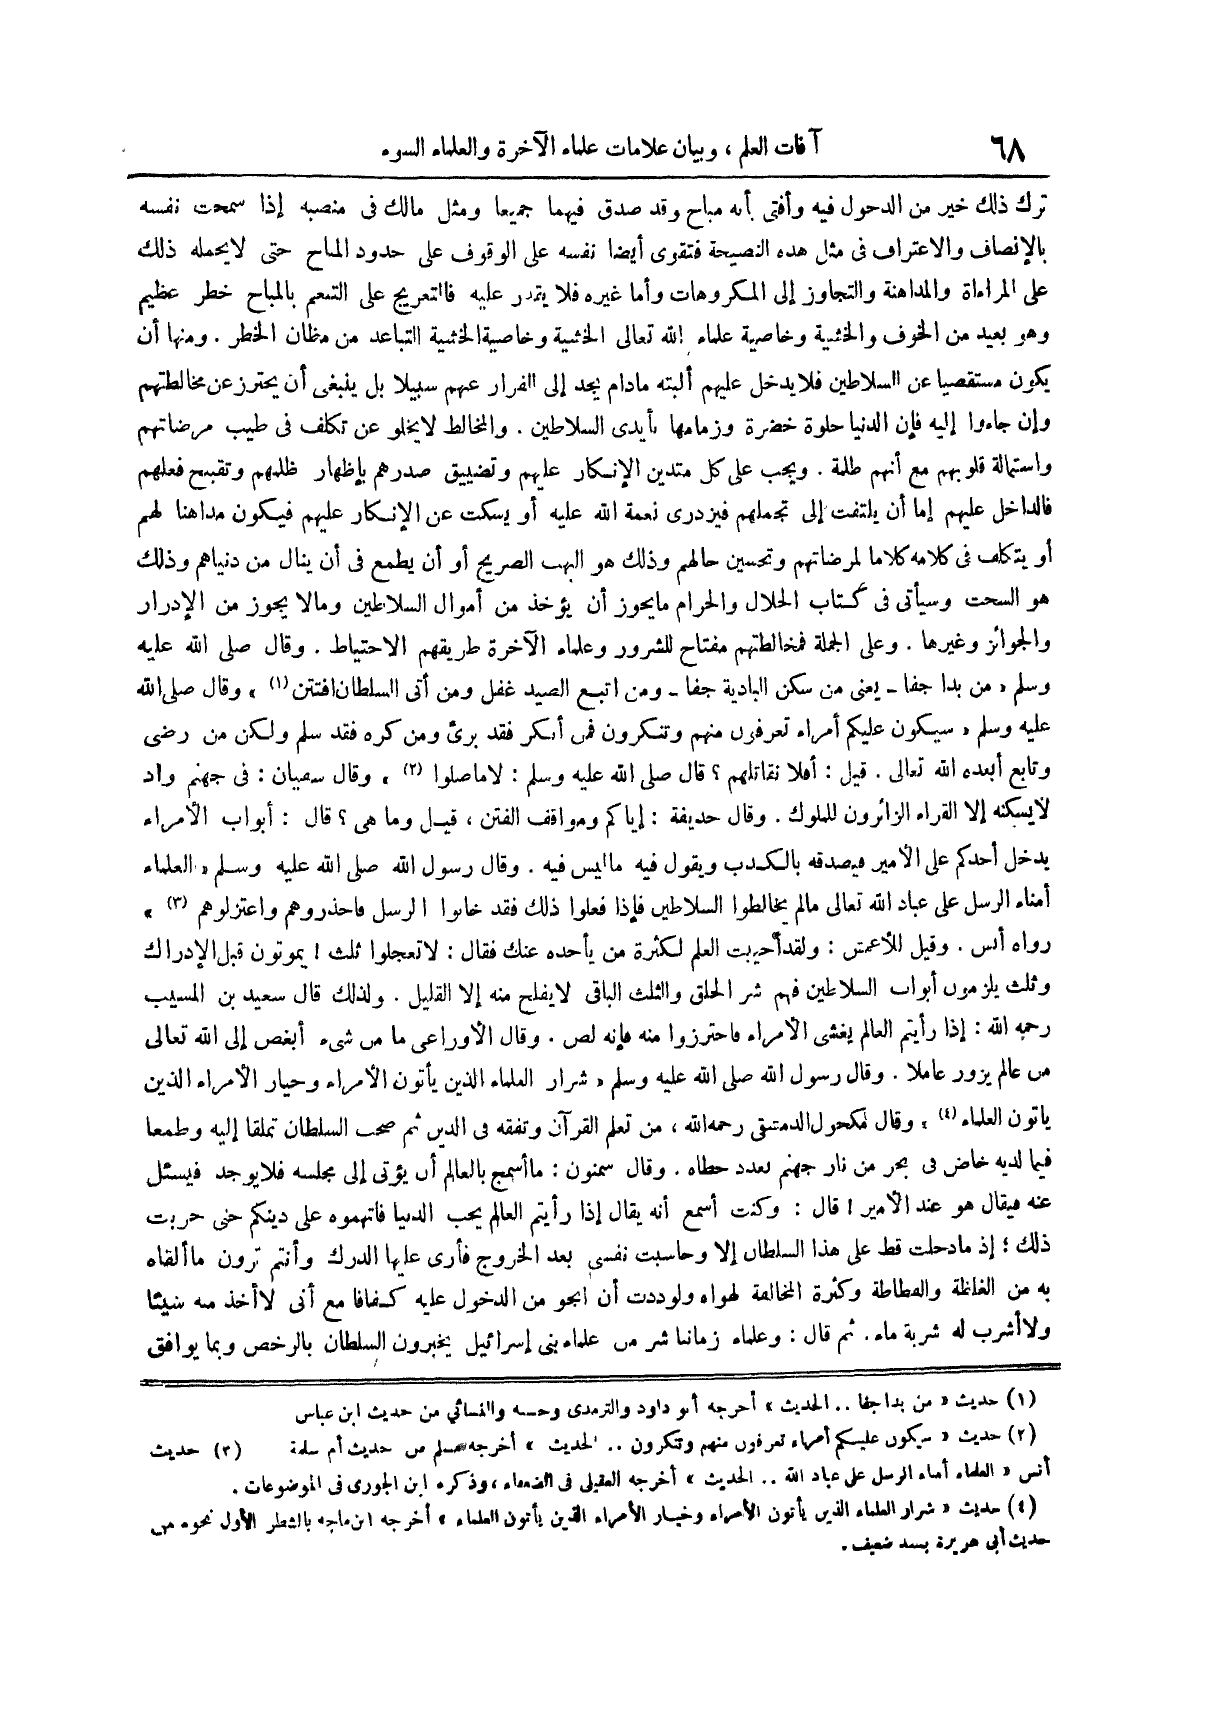 ٦٨
آفات العلم ، وبيان علامات علماء الآخرة والعلماء السوء
ترك ذلك خير من الدخول فيه وأفتى بأنه مباح وقد صدق فيهما جميعا ومثل مالك فى منصبه إذا سمحت نفسه
بالإنصاف والاعتراف فى مثل هذه النصيحة فتقوى أيضا نفسه على الوقوف على حدود المباح حتى لايحمله ذلك
على المراءاة والمداهنة والتجاوز إلى المكروهات وأما غيره فلا يقدر عليه فالتعريج على التنعم بالمباح خطر عظيم
وهو بعيد من الخوف والخشية وخاصية علماء الله تعالى الخشية وخاصية الخشية التباعد من مظان الخطر . ومنها أن
يكون مستقصيا عن السلاطين فلا يدخل عليهم ألبته مادام يجد إلى الفرار عنهم سبيلا بل ينبغى أن يحترز عن مخالطتهم
وإن جاءوا إليه فإن الدنيا حلوة خضرة وزمامها بأيدى السلاطين . والمخالط لايخلو عن تكلف فى طيب مرضاتهم
واستمالة قلوبهم مع أنهم ظلمة . ويجب على كل متدين الإنكار عليهم وتضييق صدرهم بإظهار ظلمهم وتقبيح فعلهم
فالداخل عليهم إما أن يلتفت إلى تجملهم فيزدرى نعمة الله عليه أو يسكت عن الإنكار عليهم فيكون مداهنا لهم
أو يتكلف فى كلامه كلاما لمرضاتهم وتحسين حالهم وذلك هو البهت الصريح أو أن يطمع فى أن ينال من دنياهم وذلك
هو السحت وسيأتى فى كتاب الحلال والحرام مايجوز أن يؤخذ من أموال السلاطين ومالا يجوز من الإدرار
والجوائز وغيرها . وعلى الجملة فمخالطتهم مفتاح للشرور وعلماء الآخرة طريقهم الاحتياط . وقال صلى الله عليه
وسلم « من بدا جفا ـ يعنى من سكن البادية جفا ـ ومن اتبع الصيد غفل ومن أتى السلطان افتتن (١) » وقال صلى الله
عليه وسلم « سيكون عليكم أمراء تعرفون منهم وتنكرون فمن أنكر فقد برئ ومن كره فقد سلم ولكن من رضى
وتابع أبعده الله تعالى . قيل : أفلا نقاتلهم ؟ قال صلى الله عليه وسلم : لا ماصلوا (٢) » وقال سفيان : فى جهنم واد
لايسكنه إلا القراء الزائرون للملوك . وقال حذيفة : إياكم ومواقف الفتن ، قيل وما هى ؟ قال : أبواب الأمراء
يدخل أحدكم على الأمير فيصدقه بالكذب ويقول فيه ماليس فيه . وقال رسول الله صلى الله عليه وسلم « العلماء
أمناء الرسل على عباد الله تعالى مالم يخالطوا السلاطين فإذا فعلوا ذلك فقد خانوا الرسل فاحذروهم واعتزلوهم (٣) »
رواه أنس . وقيل للأعمش : ولقد أحييت العلم لكثرة من يأخذه عنك فقال : لاتعجلوا ثلث ! يموتون قبل الإدراك
وثلث يلزمون أبواب السلاطين فهم شر الخلق والثلث الباقى لايفلح منه إلا القليل . ولذلك قال سعيد بن المسيب
رحمه الله : إذا رأيتم العالم يغشى الأمراء فاحترزوا منه فإنه لص . وقال الأوزاعى ما من شىء أبغض إلى الله تعالى
من عالم يزور عاملا . وقال رسول الله صلى الله عليه وسلم « شرار العلماء الذين يأتون الأمراء وخيار الأمراء الذين
يأتون العلماء (٤) » وقال مكحول الدمشقى رحمه الله ، من تعلم القرآن وتفقه فى الدين ثم صحب السلطان تملقا إليه وطمعا
فيما لديه خاض فى بحر من نار جهنم بعدد خطاه . وقال سمنون : ماأسمج بالعالم أن يؤتى إلى مجلسه فلا يوجد فيسئل
عنه فيقال هو عند الأمير ! قال : وكنت أسمع أنه يقال إذا رأيتم العالم يحب الدنيا فاتهموه على دينكم حتى جربت
ذلك ؛ إذ مادخلت قط على هذا السلطان إلا وحاسبت نفسى بعد الخروج فأرى عليها الدرك وأنتم ترون ماألقاه
به من الغلظة والفظاظة وكثرة المخالفة لهواه ولوددت أن أنجو من الدخول عليه كفافا مع أنى لاآخذ منه شيئا
ولاأشرب له شربة ماء . ثم قال : وعلماء زماننا شر من علماء بنى إسرائيل يخبرون السلطان بالرخص وبما يوافق
(١) حديث « من بدا جفا .. الحديث » أخرجه أبو داود والترمذى وحسنه والنسائي من حديث ابن عباس
(٢) حديث « سيكون عليكم أمراء تعرفون منهم وتنكرون .. الحديث » أخرجه مسلم من حديث أم سلمة (٣) حديث
أنس « العلماء أمناء الرسل على عباد الله .. الحديث » أخرجه العقيلى فى الضعفاء ، وذكره ابن الجوزى فى الموضوعات .
(٤) حديث « شرار العلماء الذين يأتون الأمراء وخيار الأمراء الذين يأتون العلماء » أخرجه ابن ماجه بالشطر الأول نحوه من
حديث أبى هريرة بسند ضعيف .